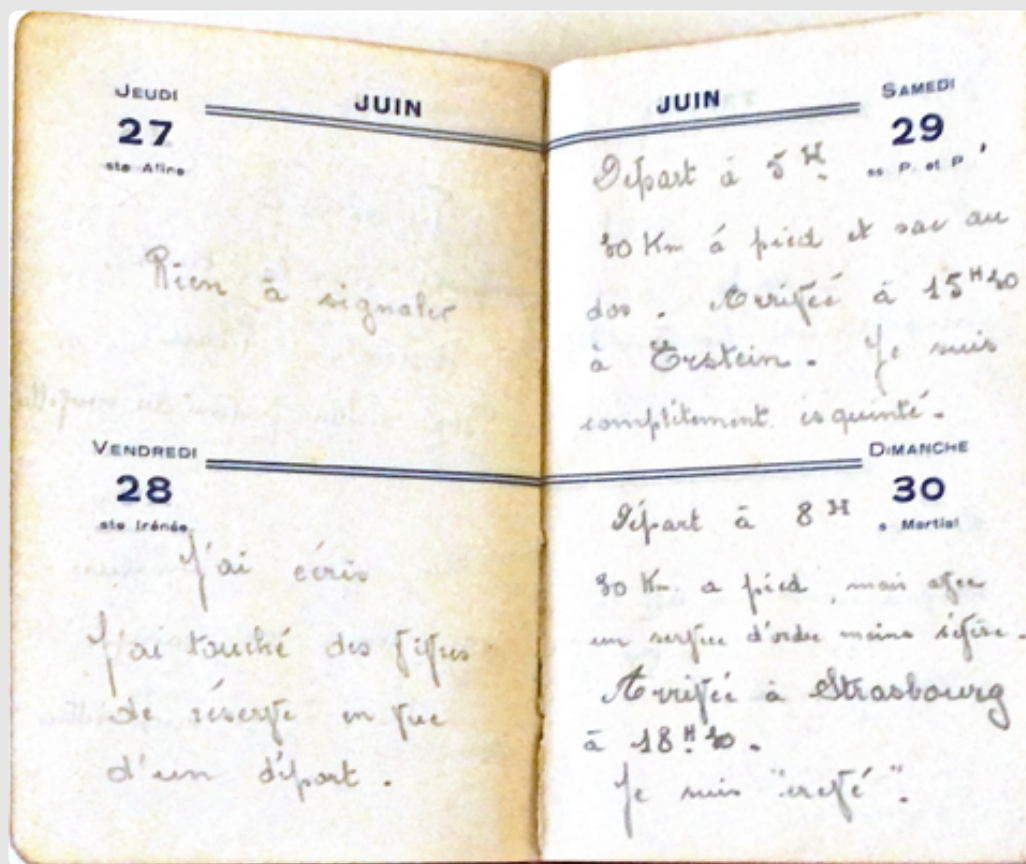 JEUDI
JUIN
27
ste Afine
Rien à signaler
VENDREDI
28
sts Irénée
J'ai écris
J'ai touché des vivres
de réserve en vue
d'un départ.
JUIN
SAMEDI
29
ss P. et P
Départ à 5 H
30 Km à pied et sac au
dos. Arrivée à 15 H 30
à Erstein. Je suis
complètement esquinté.
DIMANCHE
30
s Martial
Départ à 8 H
30 Km a pied, mais avec
un service d'ordre moins sévère.
Arrivée à Strasbourg
à 18 H 30.
Je suis "crevé".